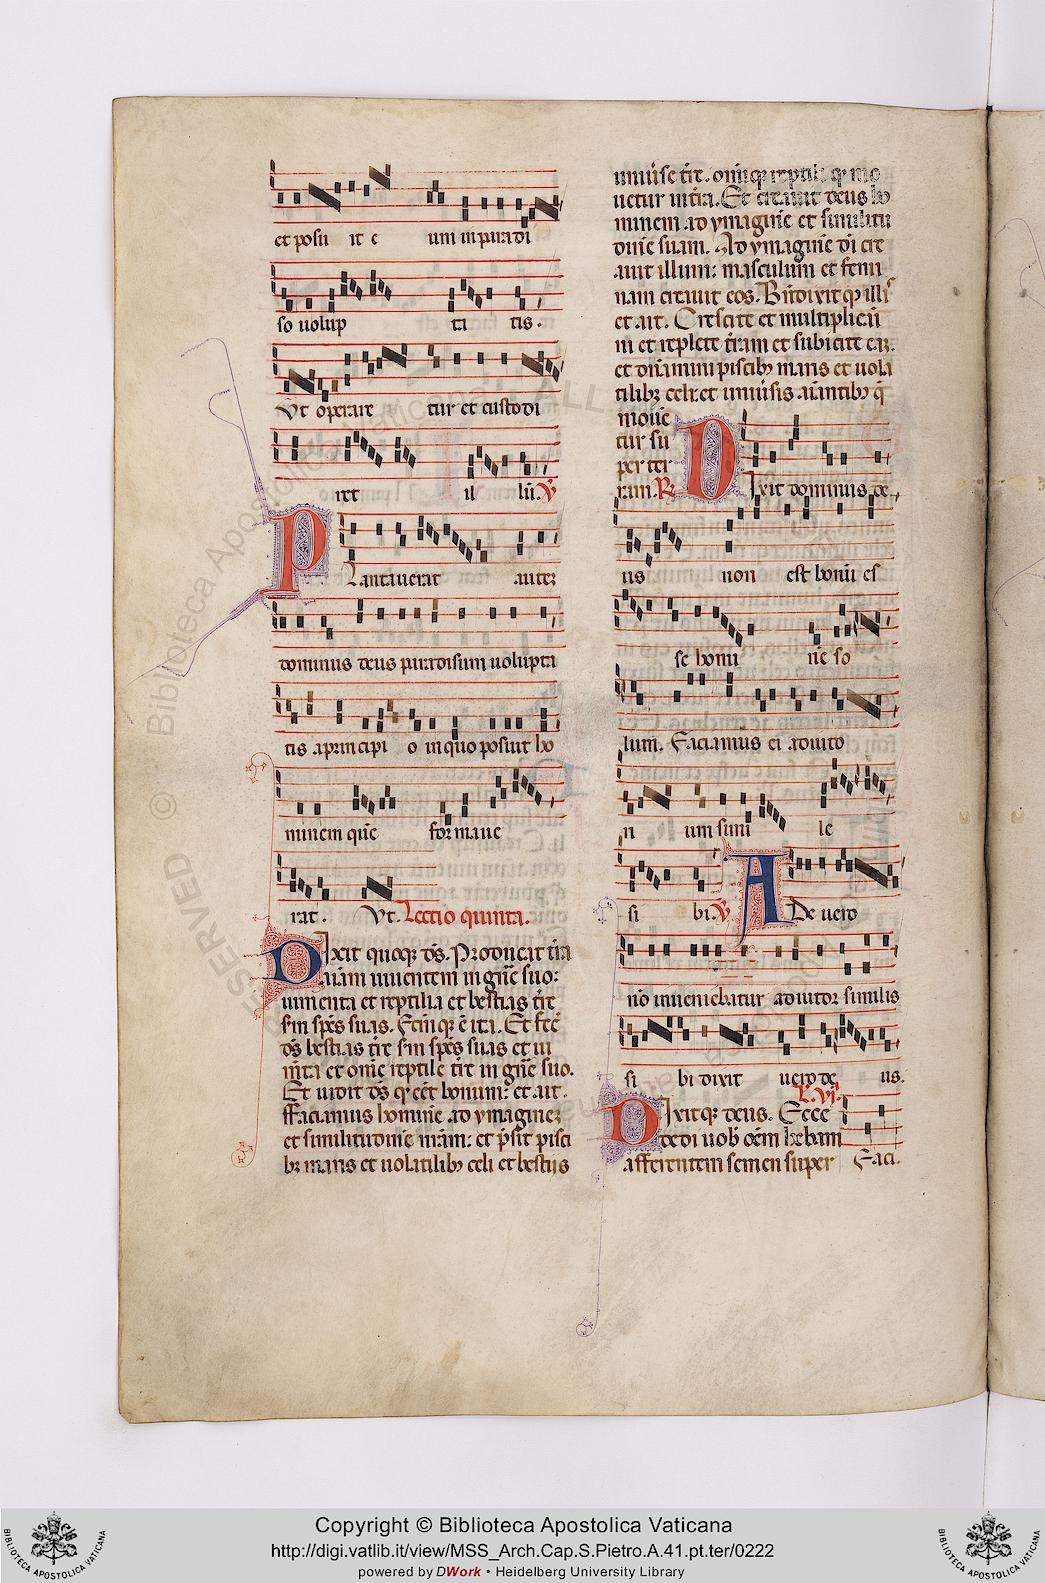 et posu it e um in paradi
so volup ta tis.
Ut operare tur et custodi
ret il lū. V
Plantaverat autez
dominus deus paradisum volupta
tis a principi o in quo posuit ho
minem quē for mave
rat. Ut. Lectio quinta.
Dixit quoqz dс̄. Producat tr̄a
aīam viventem in gn̄e suo:
iumenta et reptilia et bestias tr̄e
sm spēs suas. Fctmqz ē ita. Et fec̄
dс̄ bestias tr̄e sm spēs suas et iu
mēta et om̄e reptile tr̄e in gn̄e suo.
Et vidit dс̄ qr eēt bonum: et ait.
ffaciamus homīne ad ymaginez
et similitudinē nr̄am: et p̄sit pisci
bz maris et volatilibz celi et bestijs
univ̄se tr̄e. omīqz reptili qr mo
vetur in tr̄a. Et creavit deus ho
minem ad ymaginē et similitu
dinē suam. Ad ymaginē di cre
avit illum: masculum et femi
nam creavit eos. Bn̄dixit qz illis
et ait. Crescite et multiplicam̄
ni et replete tr̄am et subicite eaz.
et dn̄amini piscibz maris et vola
tilibz celi: et univ̄sis aīantibz q̄
move
tur su
per ter
ram. R Dixit dominus de
us non est bonū es
se homi nē so
lum. Faciamus ei adiuto
ri um simi le
si bi. V Ade vero
nō inveniebatur adiutor similis
si bi dixit vero de us.
L. vi.
Dixitqz deus. Ecce
dedi vob̄ oēm herbam
afferentem semen super Faci.
© Biblioteca Apostolica Vaticana ALL RIGHTS RESERVED
Copyright © Biblioteca Apostolica Vaticana
http://digi.vatlib.it/view/MSS_Arch.Cap.S.Pietro.A.41.pt.ter/0222
powered by DWork • Heidelberg University Library
BIBLIOTECA APOSTOLICA VATICANA
BIBLIOTECA APOSTOLICA VATICANA